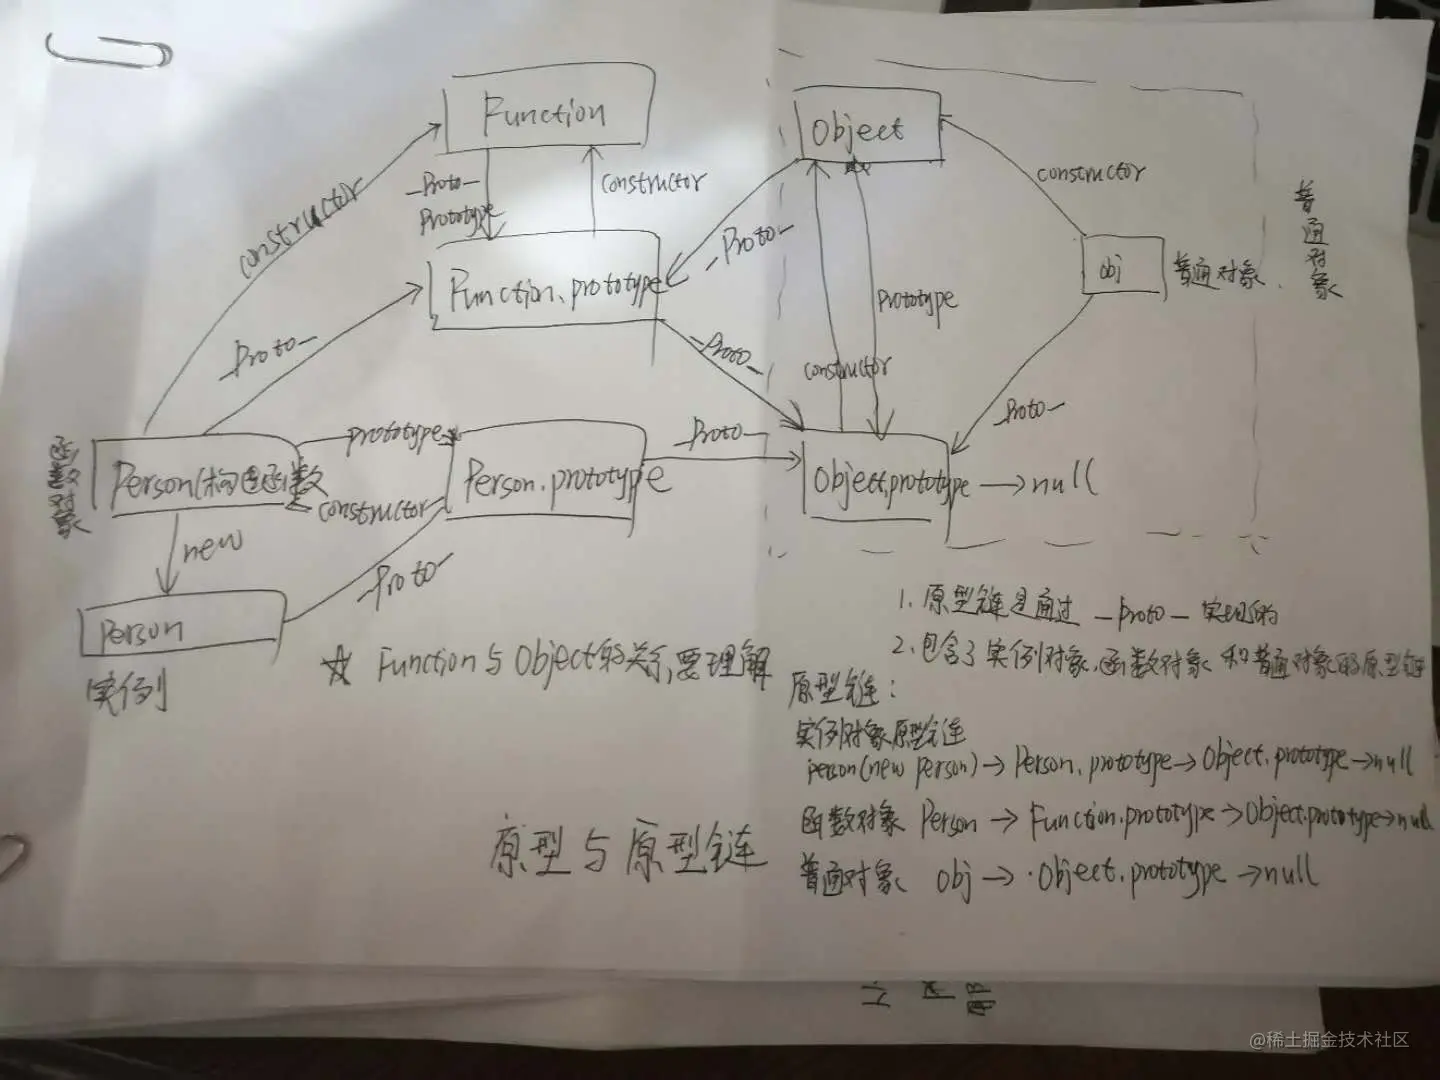 Function
Object
constructor
_Proto_
Prototype
constructor
_Proto_
constructor
普通对象
Function.prototype
obj
普通对象.
Prototype
_Proto_
_Proto_
constructor
_Proto_
函数对象
Person(构造函数
prototype
constructor
Person.prototype
_Proto_
Object.prototype → null
new
_Proto_
person
实例
☆ Function与Object的关系,要理解
1. 原型链是通过 _Proto_ 实现的
2. 包含了实例对象.函数对象 和普通对象的原型链
原型链:
实例对象原型链
person(new person) → Person.prototype → Object.prototype → null
函数对象 Person → Function.prototype → Object.prototype → null
普通对象 obj → ·Object.prototype → null
原型与原型链
@稀土掘金技术社区